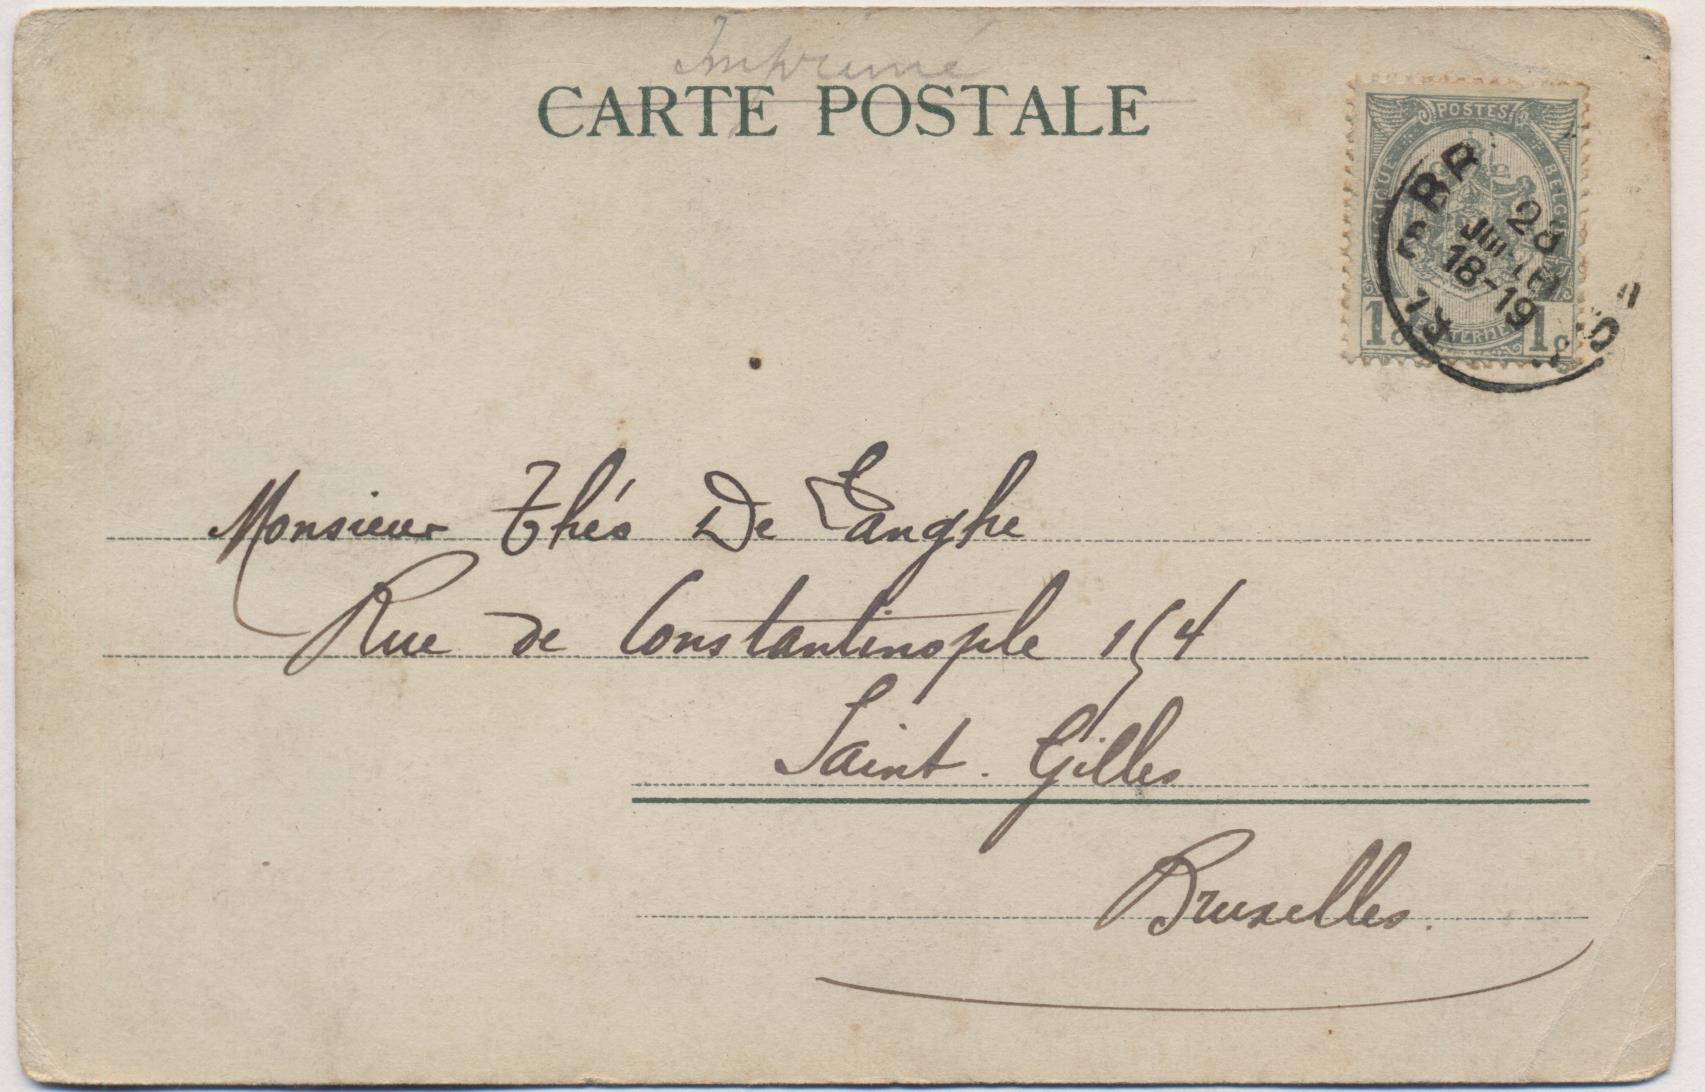 Imprimé
CARTE POSTALE
POSTES
BELGIQUE
28
18-19
1 1
Monsieur Théo De Langhe
Rue de Constantinople 154
Saint. Gilles
Bruxelles.